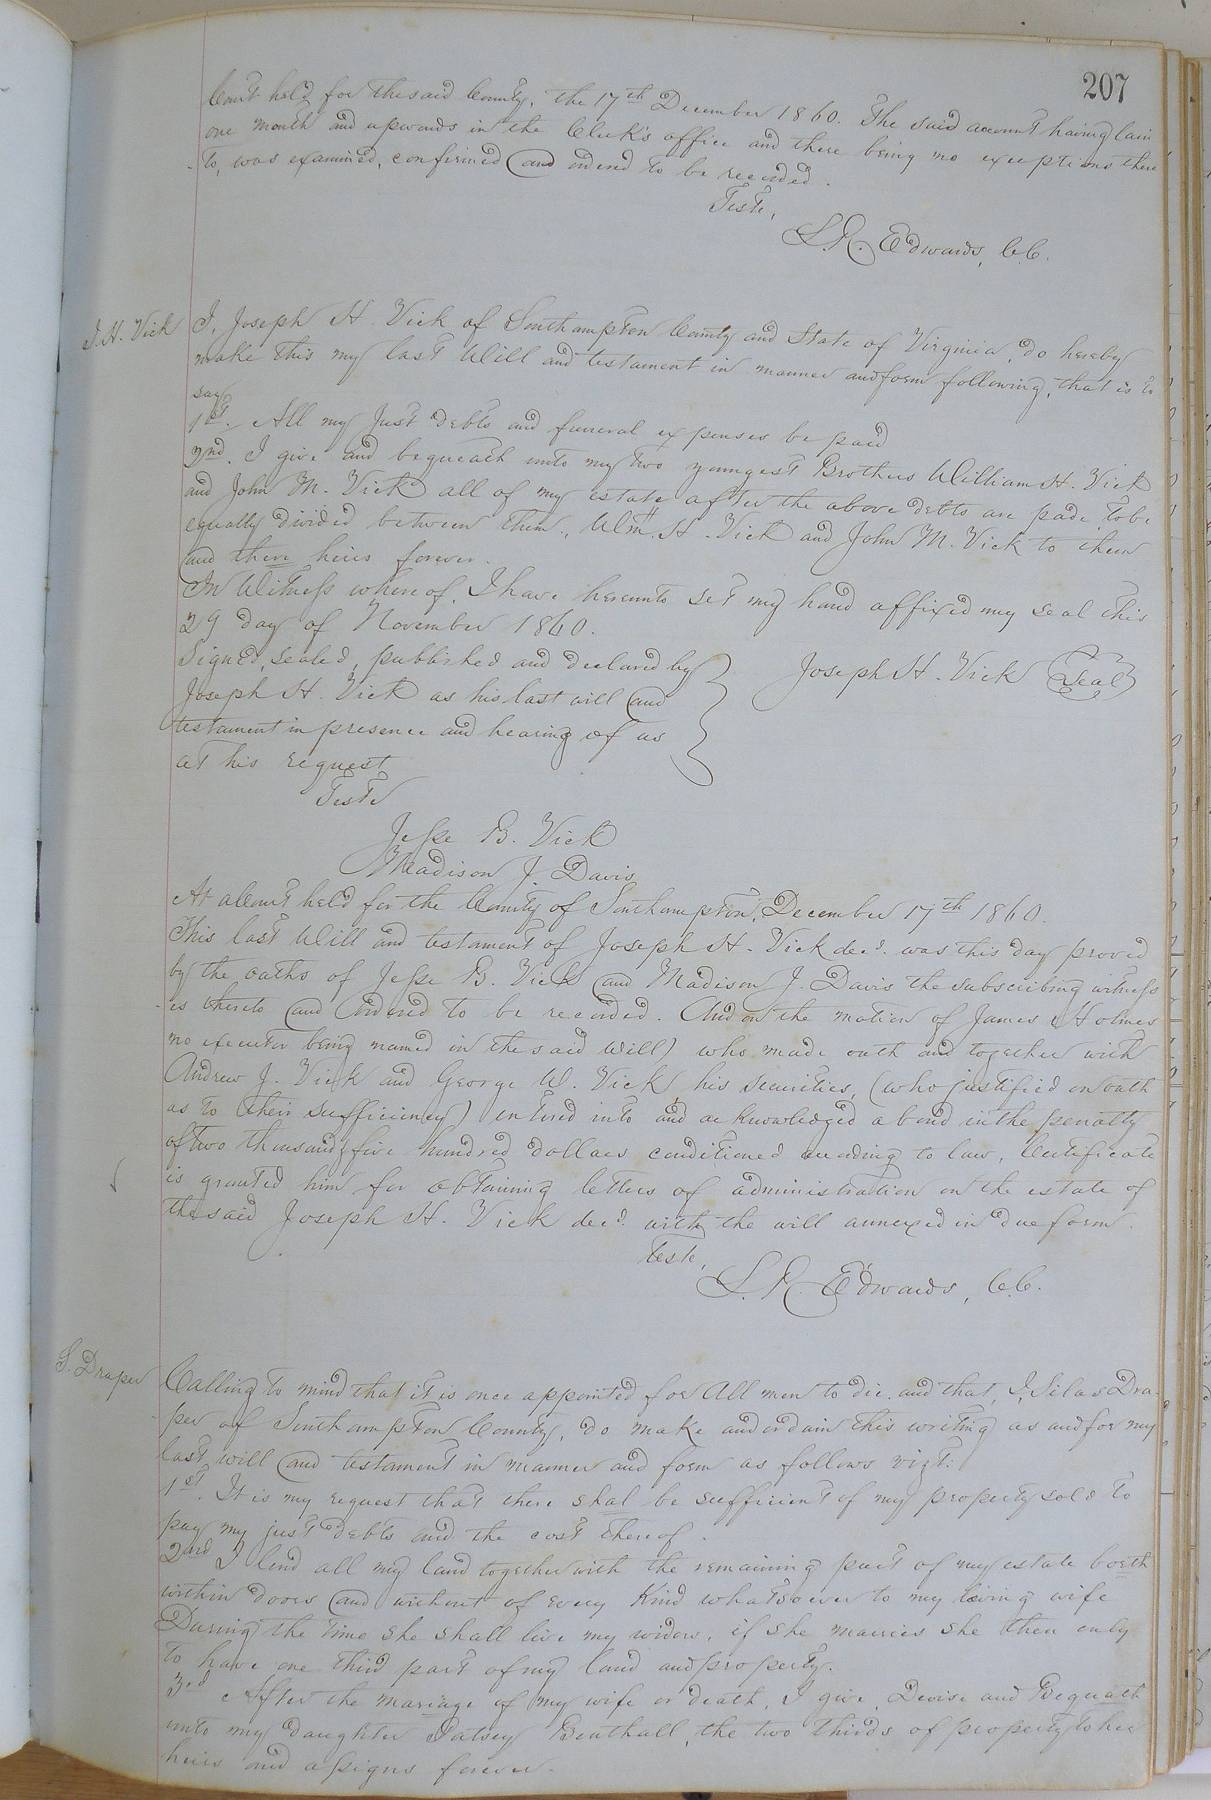 207
Court held for the said County, the 17th December 1860. The said account having lain
one month and upwards in the Clerk's office and there being no exceptions there
to, was examined, confirmed and ordered to be recorded.
Teste,
L. R. Edwards, C.C.
J. H. Vick
I, Joseph H. Vick of Southampton County and State of Virginia, do hereby
make this my last Will and testament in manner and form following, that is to
say
1st. All my Just debts and funeral expenses be paid
2nd. I give and bequeath unto my two youngest Brothers William H. Vick
and John M. Vick all of my estate after the above debts are pade to be
equally divided between them, Wm. H. Vick and John M. Vick to them
and there heirs forever.
In Witness whereof, I have hereunto set my hand affixed my seal this
29 day of November 1860.
Signed, sealed, published and declared by
Joseph H. Vick (Seal)
Joseph H. Vick as his last will and
testament in presence and hearing of us
at his request
Teste
Jesse B. Vick
Madison J Davis
At a Court held for the County of Southampton, December 17th 1860.
This last Will and testament of Joseph H. Vick decd. was this day proved
by the oaths of Jesse B. Vick and Madison J. Davis the subscribing witness
es thereto and ordered to be recorded. And on the motion of James Holmes
no executor being named in the said Will) who made oath and together with
Andrew J. Vick and George W. Vick his securities, (who justified on oath
as to their sufficiency) entered into and acknowledged a bond in the penalty
of two thousand five hundred dollars conditioned according to law, Certificate
is granted him for obtaining letters of administration on the estate of
the said Joseph H. Vick decd. with the will annexed in due form.
Teste,
L. R. Edwards, C.C.
S. Draper
Calling to mind that it is once appointed for All men to die, and that, I, Silas Dra-
per of Southampton County, do make and ordain this writing as and for my
last will and testament in manner and form as follows vizt:
1st. It is my request that there shal be sufficient of my property sold to
pay my just debts and the cost thereof.
2nd I lend all my land together with the remaining part of my estate boeth
within doors and without of every Kind whatsoever to my loving wife
During the time she shall live my widow, if she marries she then only
to have one third part of my land and property.
3rd After the mariage of my wife or death, I give, Devise and Bequeath
unto my daughter Patsey Beathall, the two thirds of property to her
heirs and assigns forever.